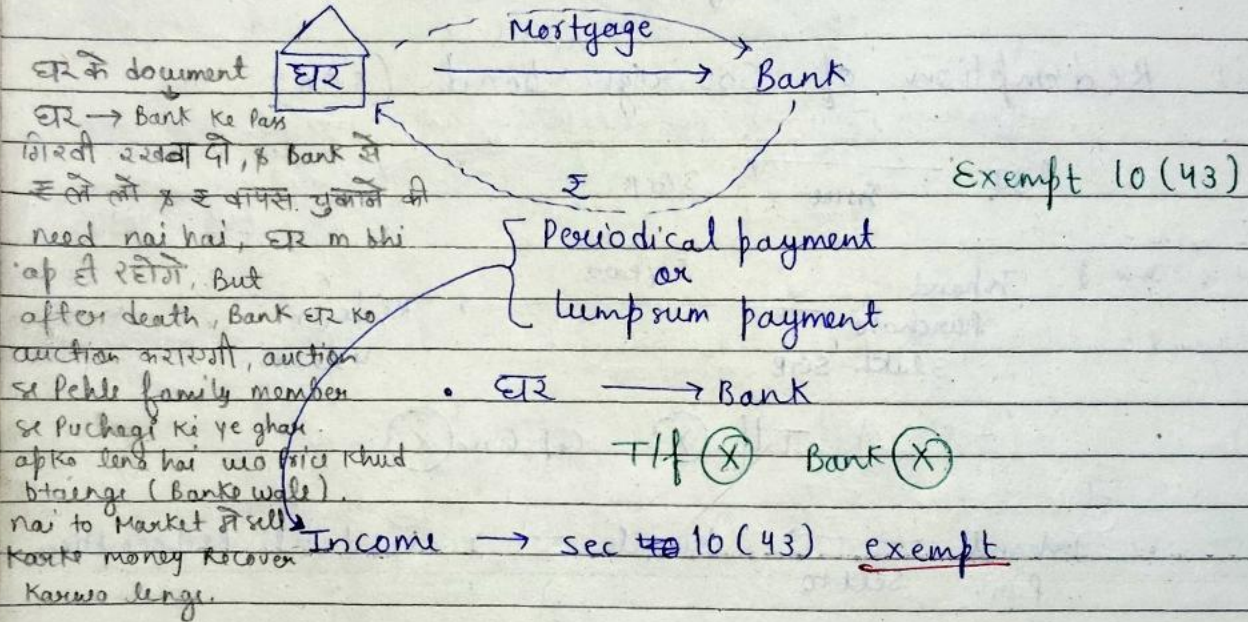 Mortgage
घर के document
घर
Bank
घर → Bank ke Pass
गिरवी रखवा दो, & Bank से
₹ ले लो & ₹ वापस चुकाने की
need nai hai, घर m bhi
ap ही रहोगे, But
after death, Bank घर ko
auction कराएगी, auction
se Pehle family member
se Puchegi ki ye ghar
apko lena hai wo price khud
btaenge (Banke wale).
nai to Market में sell
karke money Recover
karwa lenge.
₹
Exempt 10(43)
Periodical payment
or
lumpsum payment
• घर → Bank
T/f (X) Bank (X)
Income → sec 10(43) exempt